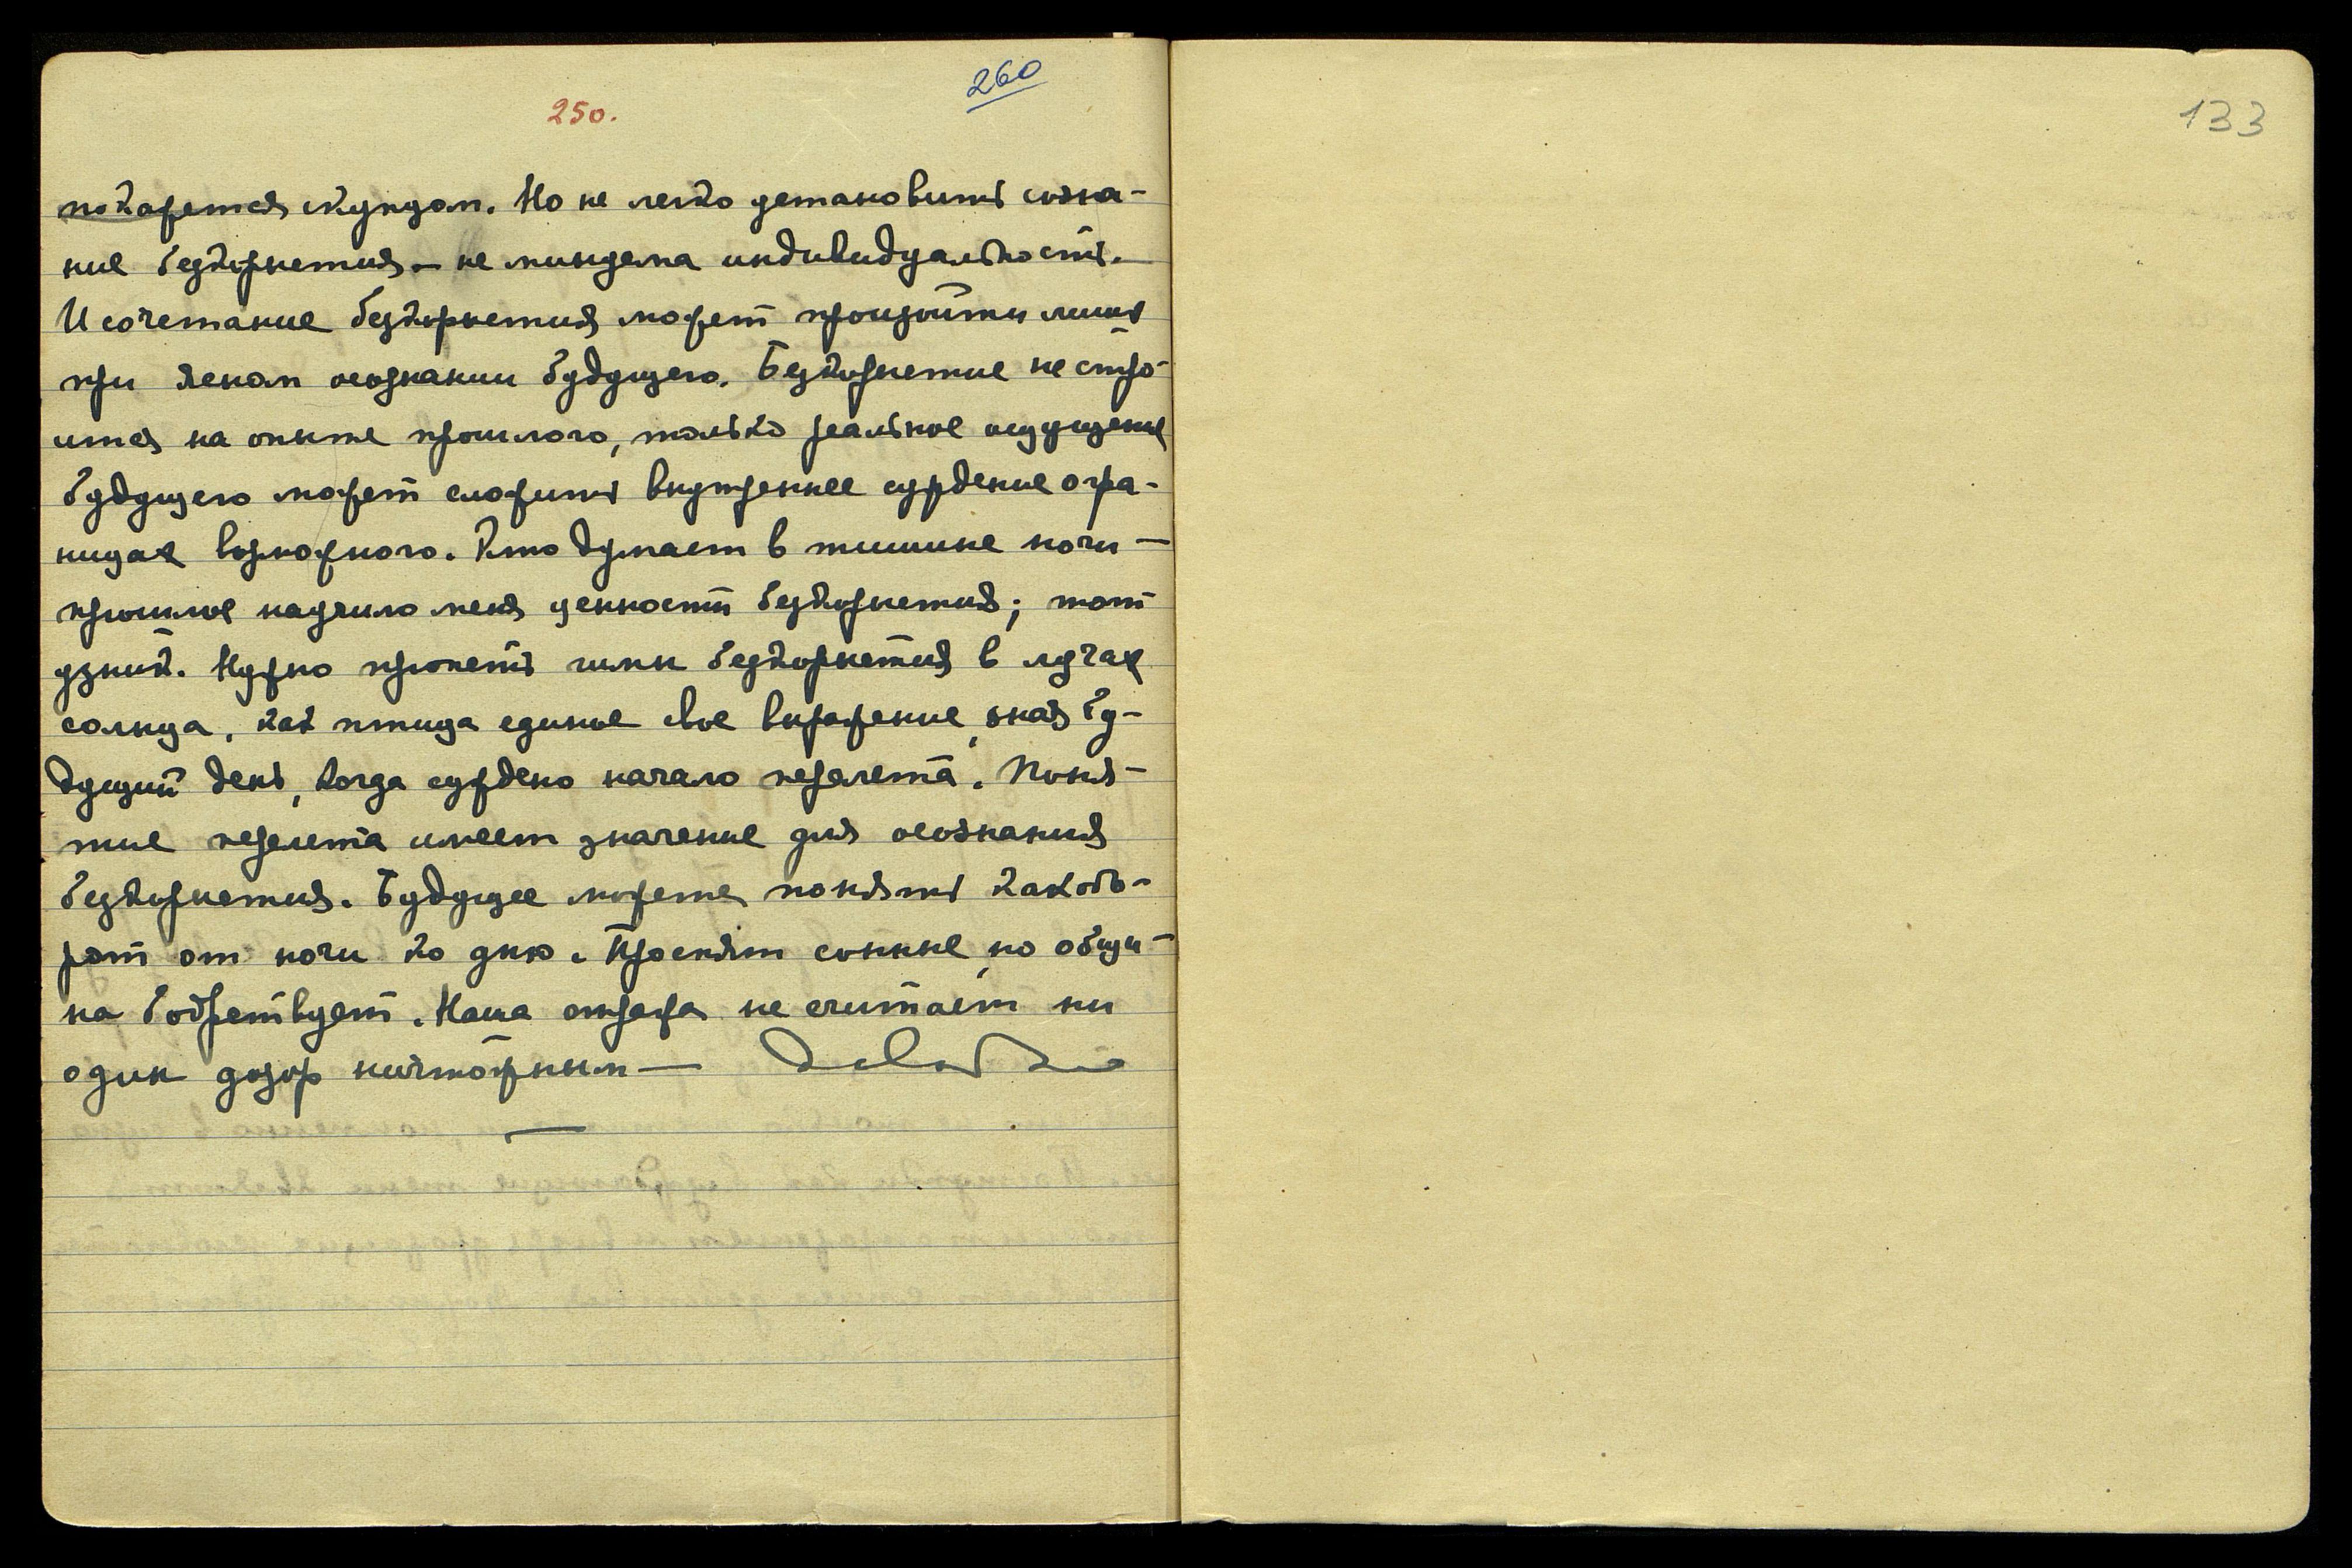 260
250.
133
покажется скудным. Но не легко установить созна-
ние безкорыстия — не минуема индивидуальность.
И сочетание безкорыстия может произойти лишь
при ясном осознании будущего. Безкорыстие не стро-
ится на опыте прошлого, только реальное ощущение
будущего может сложить внутреннее суждение о гра-
ницах возможного. Кто думает в тишине ночи —
прошлое научило меня ценности безкорыстия; тот
узник. Нужно пропеть гимн безкорыстия в лучах
солнца, как птица единое свое выражение, зная бу-
дущий день, когда суждено начало перелета. Поня-
тие перелета имеет значение для осознания
безкорыстия. Будущее можете понять как обо-
рот от ночи ко дню. Проспят сонные, но общи-
на бодрствует. Наша стража не считает ни
один дозор ничтожным —